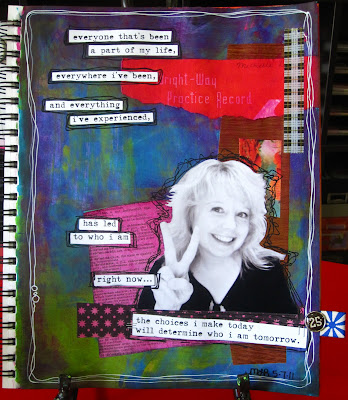 everyone that's been
a part of my life,
everywhere i've been,
Bright-Way
Practice Record
and everything
i've experienced,
has led
to who i am
right now...
the choices i make today
will determine who i am tomorrow.
25